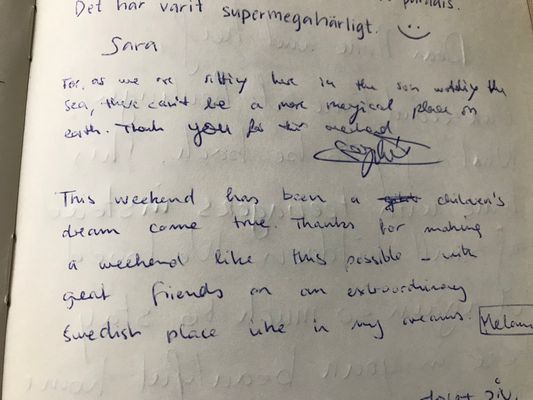 paradis.
Det har varit supermegahärligt. :)
Sara
For, as we are sitting here in the sun watching the
sea, there can't be a more magical place on
earth. Thank you for this weekend
This weekend has been a children's
dream come true. Thanks for making
a weekend like this possible - with
great friends on an extraordinary
Swedish place like in my dreams.